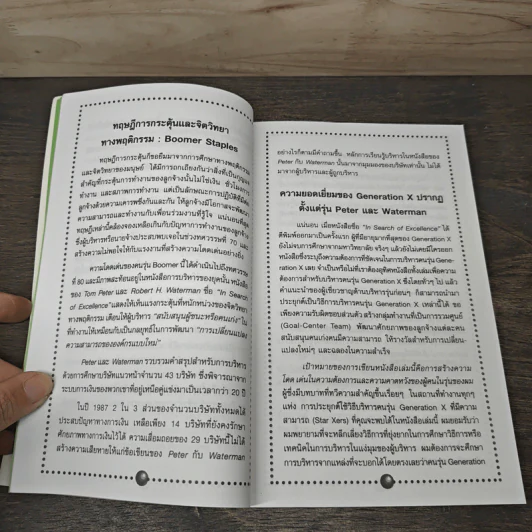 ทฤษฎีการกระตุ้นและจิตวิทยา
ทางพฤติกรรม : Boomer Staples
ทฤษฎีการกระตุ้นก็ขอยืมมาจากการศึกษาทางพฤติกรรม
และจิตวิทยาของมนุษย์ ได้มีการถกเถียงกันว่าสิ่งที่เป็นกุญแจ
สำคัญที่กระตุ้นการทำงานของลูกจ้างนั้นไม่ใช่เงิน ชั่วโมงการ
ทำงาน และสภาพการทำงาน แต่เป็นลักษณะการปฏิบัติที่มีต่อ
ลูกจ้างด้วยความเคารพซึ่งกันและกัน ให้ลูกจ้างมีโอกาสจะพัฒนา
ความสามารถและทำงานกับเพื่อนร่วมงานที่รู้ใจ แน่นอนที่สุด
ทฤษฎีเหล่านี้ต้องจองเหลื่อมเกินกับปัญหาการทำงานของลูกจ้าง
ซึ่งผู้บริหารหรือนายจ้างประสบพบเจอในช่วงทศวรรษที่ 70 และ
สร้างความไม่พอใจให้กับแรงงานที่สร้างความโดดเด่นอย่างยิ่ง
ความโดดเด่นของคนรุ่น Boomer นี้ได้ดำเนินไปถึงทศวรรษ
ที่ 80 และมีภาพสะท้อนอยู่ในหนังสือการบริหารของยุคนั้น หนังสือ
ของ Tom Peter และ Robert H. Waterman ชื่อ "In Search
of Excellence" แสดงให้เห็นแรงกระตุ้นที่หนักหน่วงของจิตวิทยา
ทางพฤติกรรม เตือนให้ผู้บริหาร "สนับสนุนผู้ชนะหรือคนเก่ง" ใน
ที่ทำงานให้เหมือนกับเป็นกลยุทธ์ในการพัฒนา "การเปลี่ยนแปลง
ความสามารถขององค์กรแบบใหม่"
Peter และ Waterman รวบรวมคำสรุปสำหรับการบริหาร
ด้วยการศึกษาบริษัทแนวหน้าจำนวน 43 บริษัท ซึ่งพิจารณาจาก
ระบบการเงินของพวกเขาที่อยู่เหนือคู่แข่งมาเป็นเวลากว่า 20 ปี
ในปี 1987 2 ใน 3 ส่วนของจำนวนบริษัททั้งหมดได้
ประสบปัญหาทางการเงิน เหลือเพียง 14 บริษัทที่ยังคงรักษา
ศักยภาพทางการเงินไว้ได้ ความเสื่อมถอยของ 29 บริษัทนี้ไม่ได้
สร้างความเสียหายให้แก่ชื่อเสียงของ Peter กับ Waterman
อย่างไรก็ตามมีคำถามขึ้น หลักการเรียนรู้บริหารในหนังสือของ
Peter กับ Waterman นั้นมาจากมุมมองของบริษัทเท่านั้น ไม่ได้
มาจากผู้บริหารและผู้ถูกบริหาร
ความยอดเยี่ยมของ Generation X ปรากฏ
ตั้งแต่รุ่น Peter และ Waterman
แน่นอน เมื่อหนังสือชื่อ "In Search of Excellence" ได้
ตีพิมพ์ออกมาเป็นครั้งแรก ผู้ที่มีอายุมากที่สุดของ Generation X
ยังไม่จบการศึกษาจากมหาวิทยาลัย จริงๆ แล้วยังไม่เคยมีใครออก
หนังสือซึ่งระบุถึงความต้องการที่ชัดเจนในการบริหารคนรุ่น Gen-
eration X เลย จำเป็นหรือไม่ที่เราต้องผลิตหนังสือทั้งเล่มเพื่อความ
ต้องการสำหรับบริหารคนรุ่น Generation X ซึ่งโดยทั่วๆ ไป แล้ว
คำแนะนำของผู้เชี่ยวชาญด้านบริหารรุ่นก่อนๆ ก็สามารถนำมา
ประยุกต์ดีเป็นวิธีการบริหารคนรุ่น Generation X เหล่านี้ได้ ขอ
เพียงความรับผิดชอบส่วนตัว สร้างกลุ่มทำงานที่เป็นการรวมศูนย์
(Goal-Center Team) พัฒนาศักยภาพของลูกจ้างแต่ละคน
สนับสนุนคนเก่งคนมีความสามารถ ให้รางวัลสำหรับการเปลี่ยน-
แปลงใหม่ๆ และฉลองในความสำเร็จ
เป้าหมายของการเขียนหนังสือเล่มนี้คือการสร้างความ
โดด เด่นในความต้องการและความคาดหวังของผู้คนในรุ่นของผม
ผู้ซึ่งมีบทบาทที่ทวีความสำคัญขึ้นเรื่อยๆ ในสถานที่ทำงานทุกๆ
แห่ง การประยุกต์ใช้วิธีบริหารคนรุ่น Generation X ที่มีความ
สามารถ (Star Xers) ที่คุณจะพบได้ในหนังสือเล่มนี้ ผมยอมรับว่า
ผมพยายามที่จะหลีกเลี่ยงวิธีการที่ยุ่งยากในการศึกษาวิธีการหรือ
เทคนิคในการบริหารในแง่มุมของผู้บริหาร ผมต้องการจะศึกษา
การบริหารจากแหล่งที่จะบอกได้โดยตรงเลยว่าคนรุ่น Generation